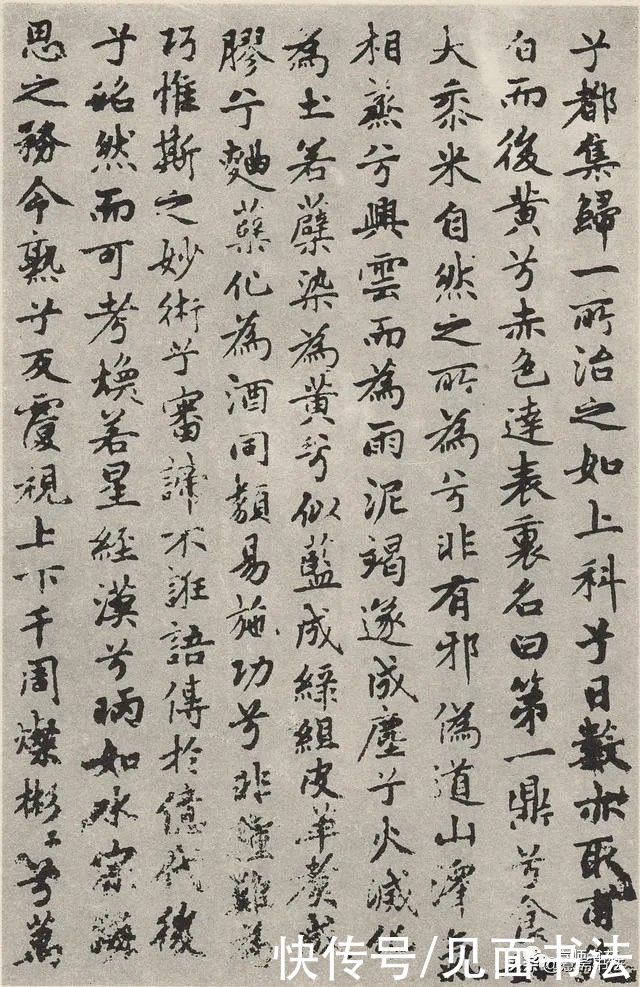 兮都集歸一所治之如上科兮日數亦取甫
白而後黃兮赤色達表裏名曰第一鼎兮食
大黍米自然之所為兮非有邪偽道山澤氣
相蒸兮興雲而為雨泥竭遂成塵兮火滅化
為土若蘗染為黃兮似藍成綠組皮革煮成
膠兮麴蘗化為酒同類易施功兮非種難為
巧惟斯之妙術兮審諦不誑語傳於億代後
兮炤然而可考煥若星經漢兮昞如水宗海
思之務令熟兮反覆視上下千周燦彬〻兮萬
快传号/见面书法